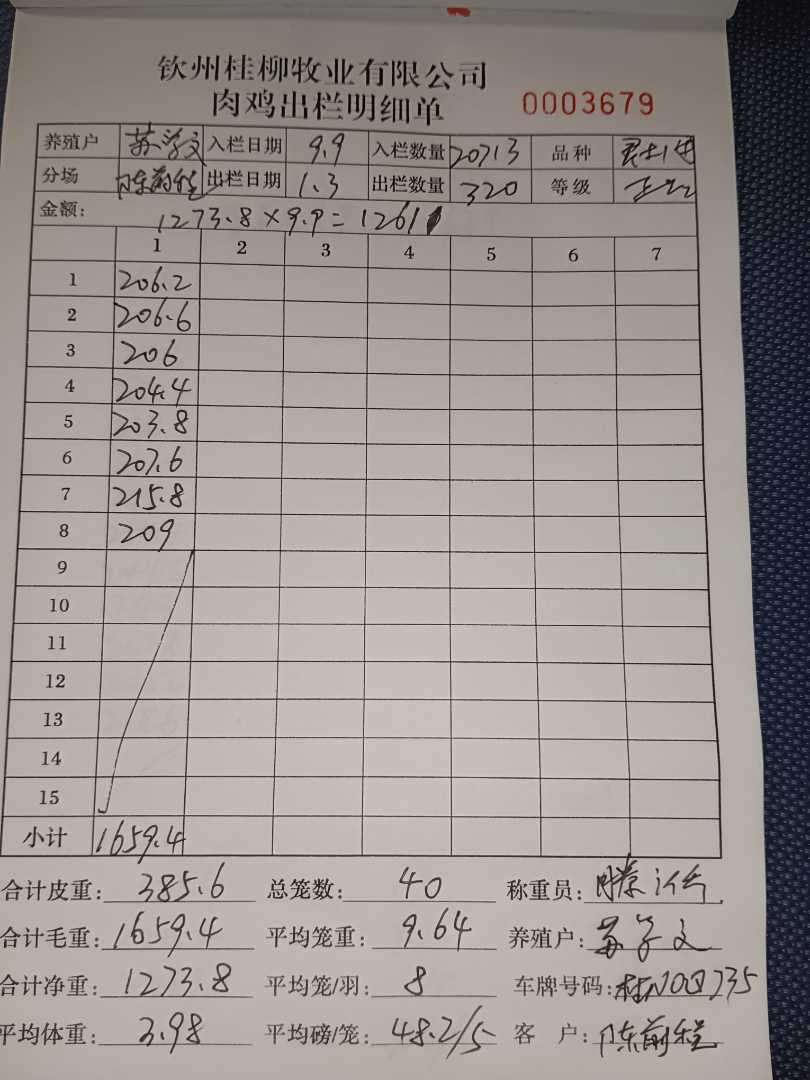 钦州桂柳牧业有限公司
肉鸡出栏明细单 0003679
养殖户 苏学文 入栏日期 9.9 入栏数量 20713 品种
分场 陈前程 出栏日期 1.3 出栏数量 320 等级
金额: 1273.8×9.9=12611
1 2 3 4 5 6 7
1 206.2
2 206.6
3 206
4 204.4
5 203.8
6 207.6
7 215.8
8 209
9
10
11
12
13
14
15
小计 1659.4
合计皮重: 385.6 总笼数: 40 称重员:
合计毛重: 1659.4 平均笼重: 9.64 养殖户: 苏学文
合计净重: 1273.8 平均笼/羽: 8 车牌号码:
平均体重: 3.98 平均磅/笼: 48.2/5 客户: 陈前程